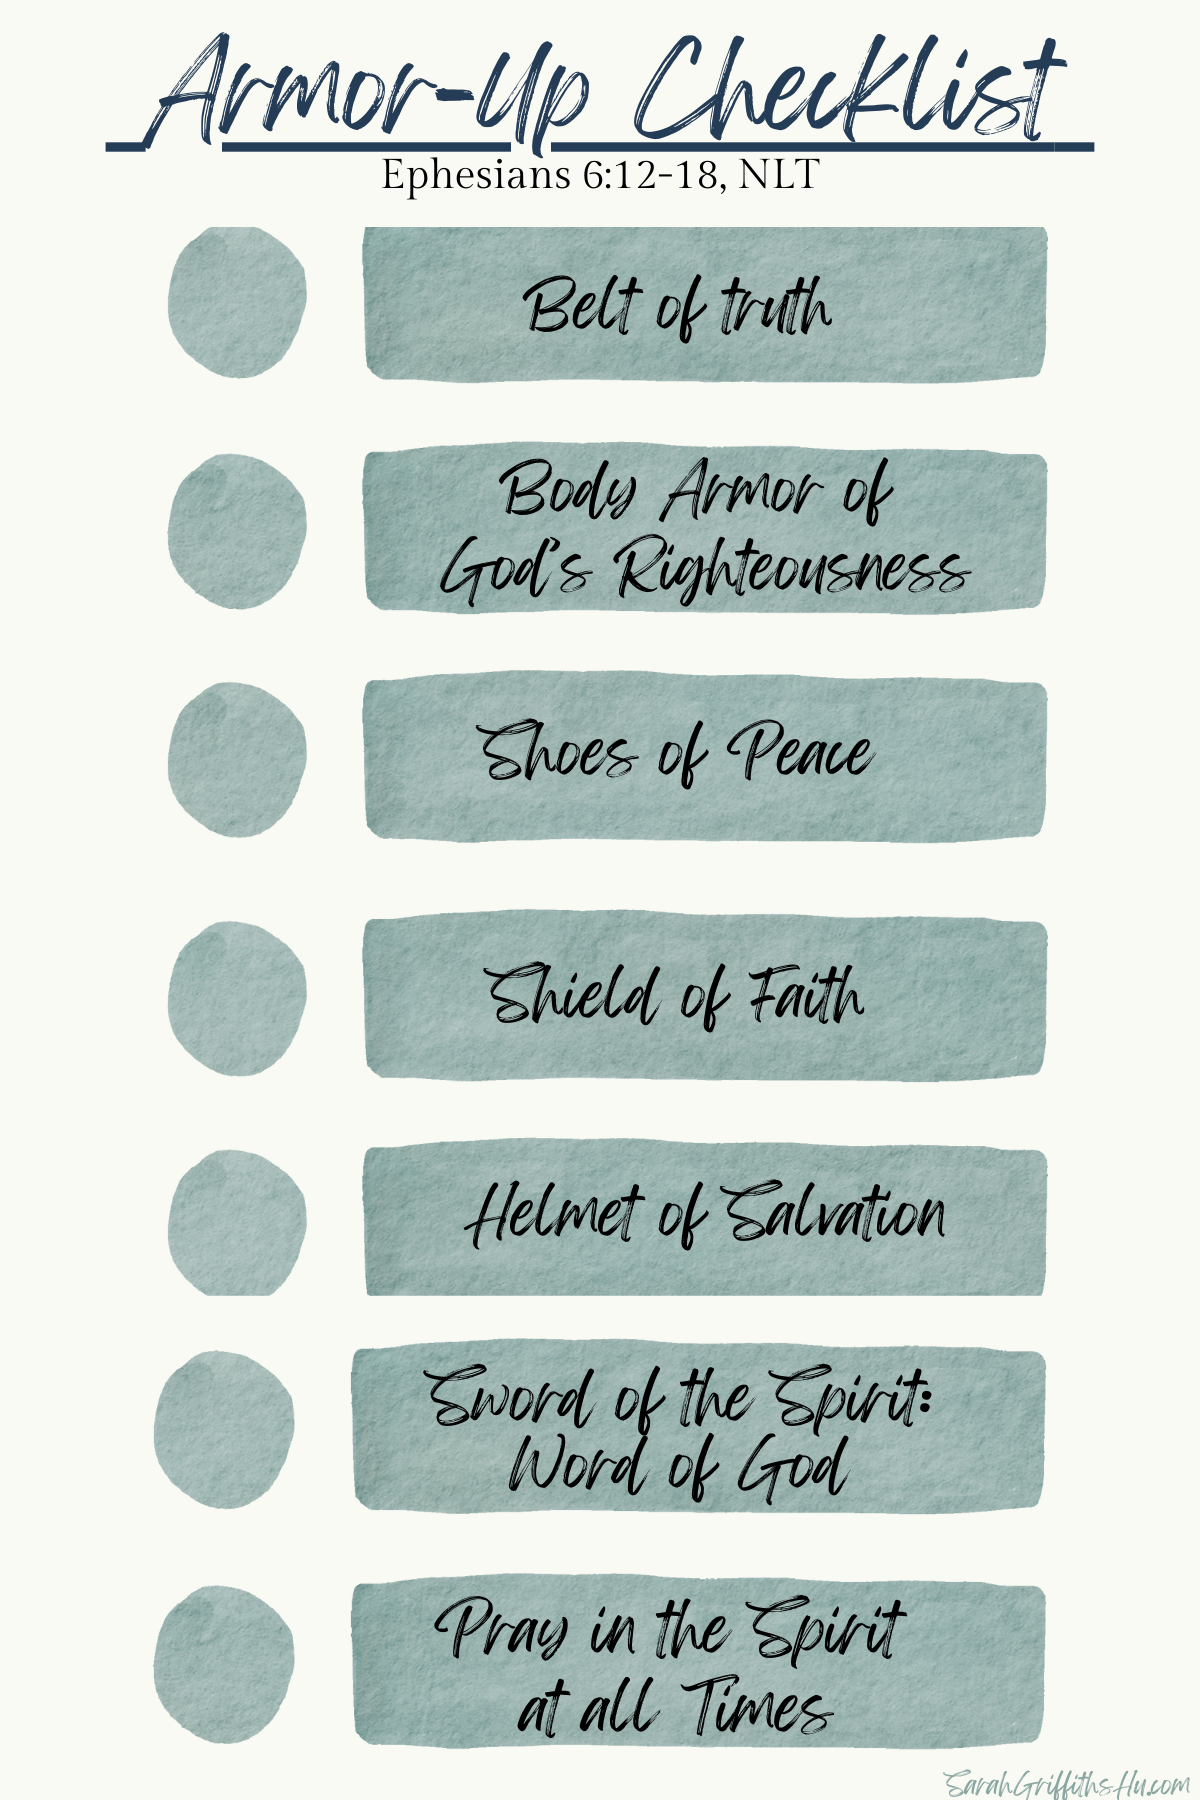 Armor-Up Checklist
Ephesians 6:12-18, NLT
Belt of truth
Body Armor of
God's Righteousness
Shoes of Peace
Shield of Faith
Helmet of Salvation
Sword of the Spirit:
Word of God
Pray in the Spirit
at all Times
SarahGriffithsHu.com